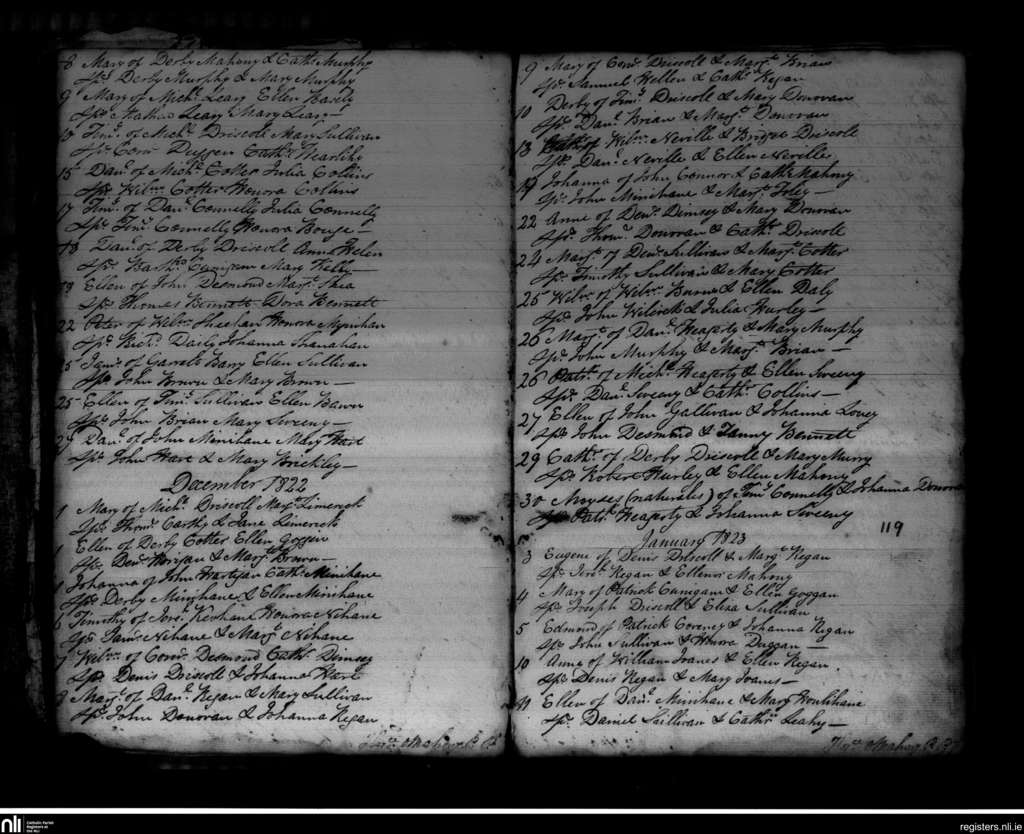 8 Mary of Derby Mahony & Cathe Murphy
Sps Derby Murphy & Mary Murphy
9 Mary of Michl Leary Ellen Hasely
Sps Mathas Leary Mary Leary —
13 Timy of Michl Driscole Mary Sullivan
Sps Corns Duggen Cathe
15 Dan of Michl Cotter Julia Collins
Sps Willm Cotter Honora Collins
17 Timy of Danl Connelly Julia Connelly
Sps Timy Connelly Honora Bouse —
18 Danl of Derby Driscoll Anna Helen
Sps Barthw Cunigam Mary Kelly —
19 Ellen of John Desmond Margt Shea
Sps Thomas Bennett Dora Bennett
22 Peter of Willm Sheehan Honora Mynihan
Sps Richd Daily Johanna Shanahan
5 Jams of Garrett Barry Ellen Sullivan
Sps John Brown & Mary Brown —
25 Ellen of Timy Sullivan Ellen Bawn
Sps John Brian Mary Sweeny —
29 Danl of John Minihane Mary Hart
Sps John Hare & Mary Brickley —
December 1822
1 Mary of Michl Driscoll Margt Limerick
Sps Thoms Carthy & Jane Limerick
1 Ellen of Derby Cotter Ellen Goggin
Sps Denis & Margt Brown —
1 Johanna of John Hartigan Cathe Minihane
Sps Derby Minihane & Ellen Minihane
6 Timothy of Jerh Keohane Honora Nehane
Sps Jams Nehane & Margt Nehane
7 Willm of Corns Desmond Cathe Dimsey
Sps Denis Driscoll & Johanna Hart
8 Margt of Danl Regan & Mary Sullivan
Sps John Donovan & Johanna Regan
9 Mary of Corns Driscoll & Margt Brian
Sps Samuel Wellen & Cathe Regan
10 Derby of Timy Driscoll & Mary Donovan
Sps Danl Brian & Margt Donovan
13 Cathe of Willm Neville & Bridget Driscole
Sps Danl Neville & Ellen Neville
19 Johanna of John Connor & Cathe Mahony
Sps John Minihane & Margt Foley —
22 Anne of Denis Dimsey & Mary Donovan
Sps Thoms Donovan & Cathe Driscole
24 Margt of Denis Sullivan & Margt Cotter
Sps Timothy Sullivan & Mary Cotter
25 Willm of Willm Burns & Ellen Daly
Sps John Welsick & Julia Hurley —
26 Margt of Danl Heaperty & Mary Murphy
Sps John Murphy & Margt Brian —
26 Patk of Michl Heaperty & Ellen Sweeny
Sps Danl Sweeny & Cathe Collins —
27 Ellen of John Gallivan & Johanna Loney
Sps John Desmond & Fanny Bennett
29 Cathe of Derby Driscoll & Mary Murry
Sps Robert Hurley & Ellen Mahony
30 Moyses (naturales) of Timy Connelly & Johanna Donova
Sps Patk Heaperty & Johanna Sweeny
119
January 1823
3 Eugene of Denis Driscoll & Margt Regan
Sps Jerh Regan & Ellenor Mahony
4 Mary of Patrick Cunigane & Ellen Goggan
Sps Joseph Driscoll & Eliza Sullivan
5 Edmond of Patrick Coveney & Johanna Regan
Sps John Sullivan & Honora Duggan —
10 Anne of William Joanes & Ellen Regan
Sps Denis Regan & Mary Joanes —
11 Ellen of Danl Minihane & Mary Houlihane
Sps Daniel Sullivan & Cathe Leahy —
nli Catholic Parish Registers at the NLI
registers.nli.ie